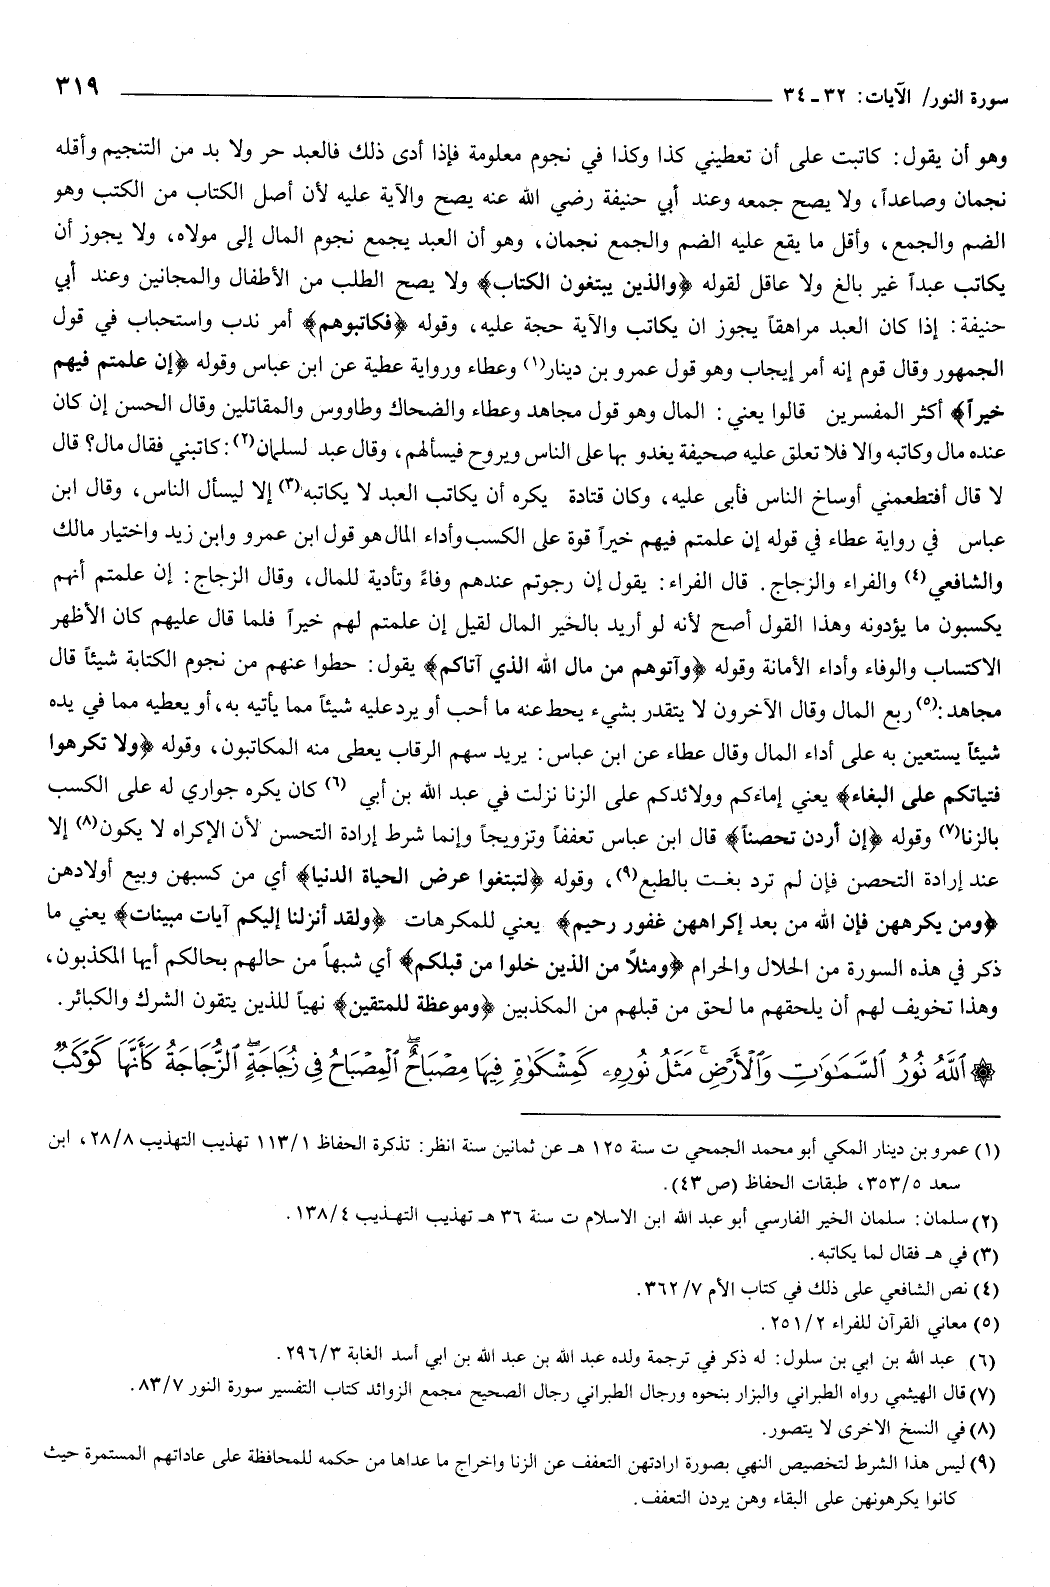 سورة النور/ الآيات: ٣٢ ـ ٣٤ ٣١٩
وهو أن يقول: كاتبت على أن تعطيني كذا وكذا في نجوم معلومة فإذا أدى ذلك فالعبد حر ولا بد من التنجيم وأقله
نجمان وصاعداً، ولا يصح جمعه وعند أبي حنيفة رضي الله عنه يصح والآية عليه لأن أصل الكتاب من الكتب وهو
الضم والجمع، وأقل ما يقع عليه الضم والجمع نجمان، وهو أن العبد يجمع نجوم المال إلى مولاه، ولا يجوز أن
يكاتب عبداً غير بالغ ولا عاقل لقوله ﴿والذين يبتغون الكتاب﴾ ولا يصح الطلب من الأطفال والمجانين وعند أبي
حنيفة: إذا كان العبد مراهقاً يجوز ان يكاتب والآية حجة عليه، وقوله ﴿فكاتبوهم﴾ أمر ندب واستحباب في قول
الجمهور وقال قوم إنه أمر إيجاب وهو قول عمرو بن دينار(١) وعطاء ورواية عطية عن ابن عباس وقوله ﴿إن علمتم فيهم
خيراً﴾ أكثر المفسرين قالوا يعني: المال وهو قول مجاهد وعطاء والضحاك وطاووس والمقاتلين وقال الحسن إن كان
عنده مال وكاتبه والا فلا تعلق عليه صحيفة يغدو بها على الناس ويروح فيسألهم، وقال عبد لسلمان(٢): كاتبني فقال مال؟ قال
لا قال أفتطعمني أوساخ الناس فأبى عليه، وكان قتادة يكره أن يكاتب العبد لا يكاتبه(٣) إلا ليسأل الناس، وقال ابن
عباس في رواية عطاء في قوله إن علمتم فيهم خيراً قوة على الكسب وأداء المال هو قول ابن عمرو وابن زيد واختيار مالك
والشافعي(٤) والفراء والزجاج. قال الفراء: يقول إن رجوتم عندهم وفاءً وتأدية للمال، وقال الزجاج: إن علمتم أنهم
يكسبون ما يؤدونه وهذا القول أصح لأنه لو أريد بالخير المال لقيل إن علمتم لهم خيراً فلما قال عليهم كان الأظهر
الاكتساب والوفاء وأداء الأمانة وقوله ﴿وآتوهم من مال الله الذي آتاكم﴾ يقول: حطوا عنهم من نجوم الكتابة شيئاً قال
مجاهد:(٥) ربع المال وقال الآخرون لا يتقدر بشيء يحط عنه ما أحب أو يرد عليه شيئاً مما يأتيه به، أو يعطيه مما في يده
شيئاً يستعين به على أداء المال وقال عطاء عن ابن عباس: يريد سهم الرقاب يعطى منه المكاتبون، وقوله ﴿ولا تكرهوا
فتياتكم على البغاء﴾ يعني إماءكم وولائدكم على الزنا نزلت في عبد الله بن أبي (٦) كان يكره جواري له على الكسب
بالزنا(٧) وقوله ﴿إن أردن تحصناً﴾ قال ابن عباس تعففاً وتزويجاً وإنما شرط إرادة التحسن لأن الإكراه لا يكون(٨) إلا
عند إرادة التحصن فإن لم ترد بغت بالطبع(٩)، وقوله ﴿لتبتغوا عرض الحياة الدنيا﴾ أي من كسبهن وبيع أولادهن
﴿ومن يكرههن فإن الله من بعد إكراههن غفور رحيم﴾ يعني للمكرهات ﴿ولقد أنزلنا إليكم آيات مبينات﴾ يعني ما
ذكر في هذه السورة من الحلال والحرام ﴿ومثلاً من الذين خلوا من قبلكم﴾ أي شبهاً من حالهم بحالكم أيها المكذبون،
وهذا تخويف لهم أن يلحقهم ما لحق من قبلهم من المكذبين ﴿وموعظة للمتقين﴾ نهياً للذين يتقون الشرك والكبائر.
۞ ٱللَّهُ نُورُ ٱلسَّمَٰوَٰتِ وَٱلْأَرْضِ ۚ مَثَلُ نُورِهِۦ كَمِشْكَوٰةٍ فِيهَا مِصْبَاحٌ ۖ ٱلْمِصْبَاحُ فِي زُجَاجَةٍ ۖ ٱلزُّجَاجَةُ كَأَنَّهَا كَوْكَبٌ
(١) عمرو بن دينار المكي أبو محمد الجمحي ت سنة ١٢٥ هـ عن ثمانين سنة انظر: تذكرة الحفاظ ١١٣/١ تهذيب التهذيب ٢٨/٨، ابن
سعد ٣٥٣/٥، طبقات الحفاظ (ص ٤٣).
(٢) سلمان: سلمان الخير الفارسي أبو عبد الله ابن الاسلام ت سنة ٣٦ هـ تهذيب التهذيب ١٣٨/٤.
(٣) في هـ فقال لما يكاتبه.
(٤) نص الشافعي على ذلك في كتاب الأم ٣٦٢/٧.
(٥) معاني القرآن للفراء ٢٥١/٢.
(٦) عبد الله بن ابي بن سلول: له ذكر في ترجمة ولده عبد الله بن عبد الله بن ابي أسد الغابة ٢٩٦/٣.
(٧) قال الهيثمي رواه الطبراني والبزار بنحوه ورجال الطبراني رجال الصحيح مجمع الزوائد كتاب التفسير سورة النور ٨٣/٧.
(٨) في النسخ الاخرى لا يتصور.
(٩) ليس هذا الشرط لتخصيص النهي بصورة ارادتهن التعفف عن الزنا واخراج ما عداها من حكمه للمحافظة على عاداتهم المستمرة حيث
كانوا يكرهونهن على البقاء وهن يردن التعفف.